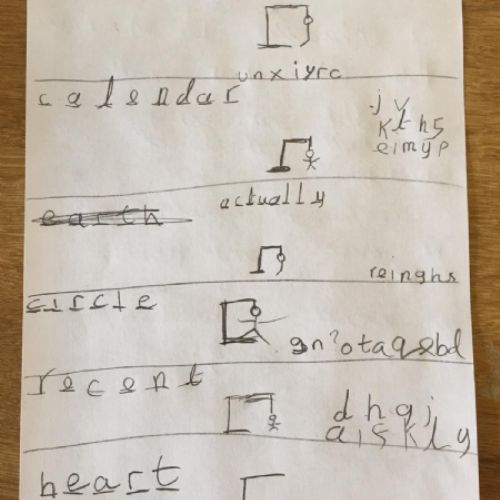 unxiyrc
calendar
jv
kths
eimyp
actually
earth
reinghs
circle
gn?otaqebd
recent
dhgj
aiskly
heart